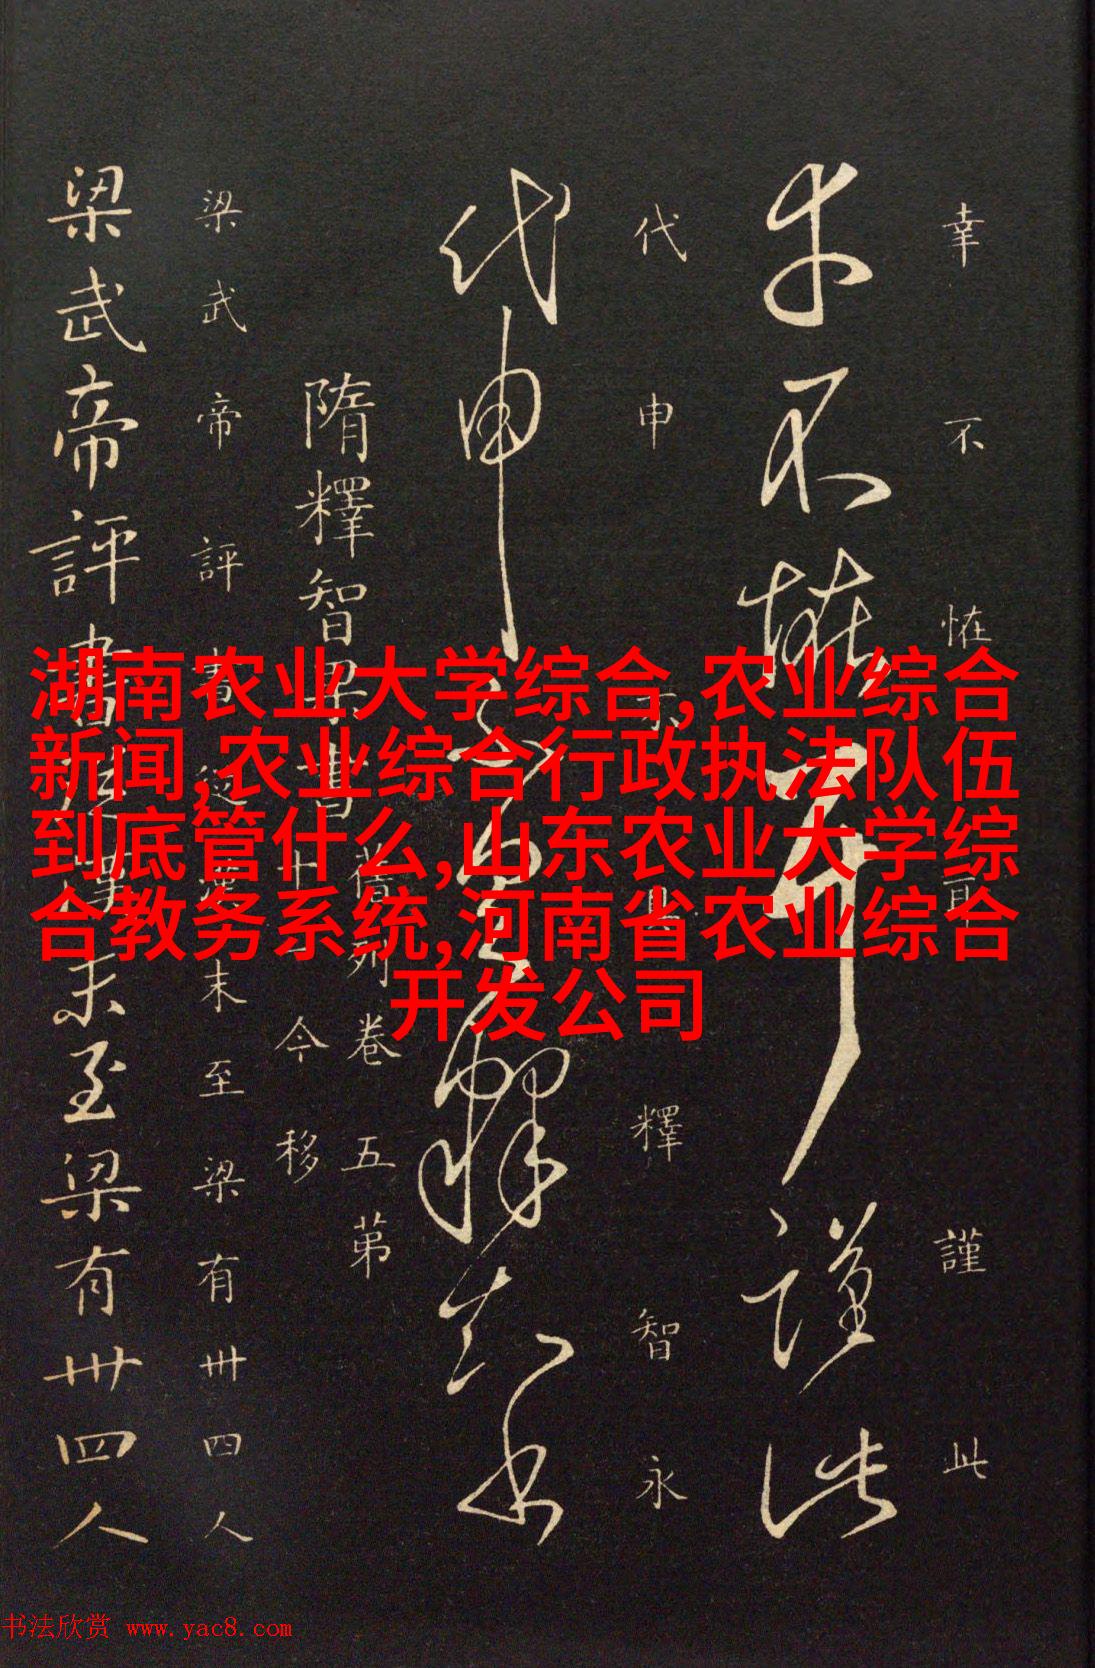 幸不怪耳謹此
代申
釋智永
隋釋智果書
舊列卷五苐
廿一今移
梁武帝評書從漢末至梁有卌四人
梁武帝評書從漢末至梁有卌四人
湖南农业大学综合,农业综合
新闻,农业综合行政执法队伍
到底管什么,山东农业大学综
合教务系统,河南省农业综合
开发公司
书法欣赏 www.yac8.com